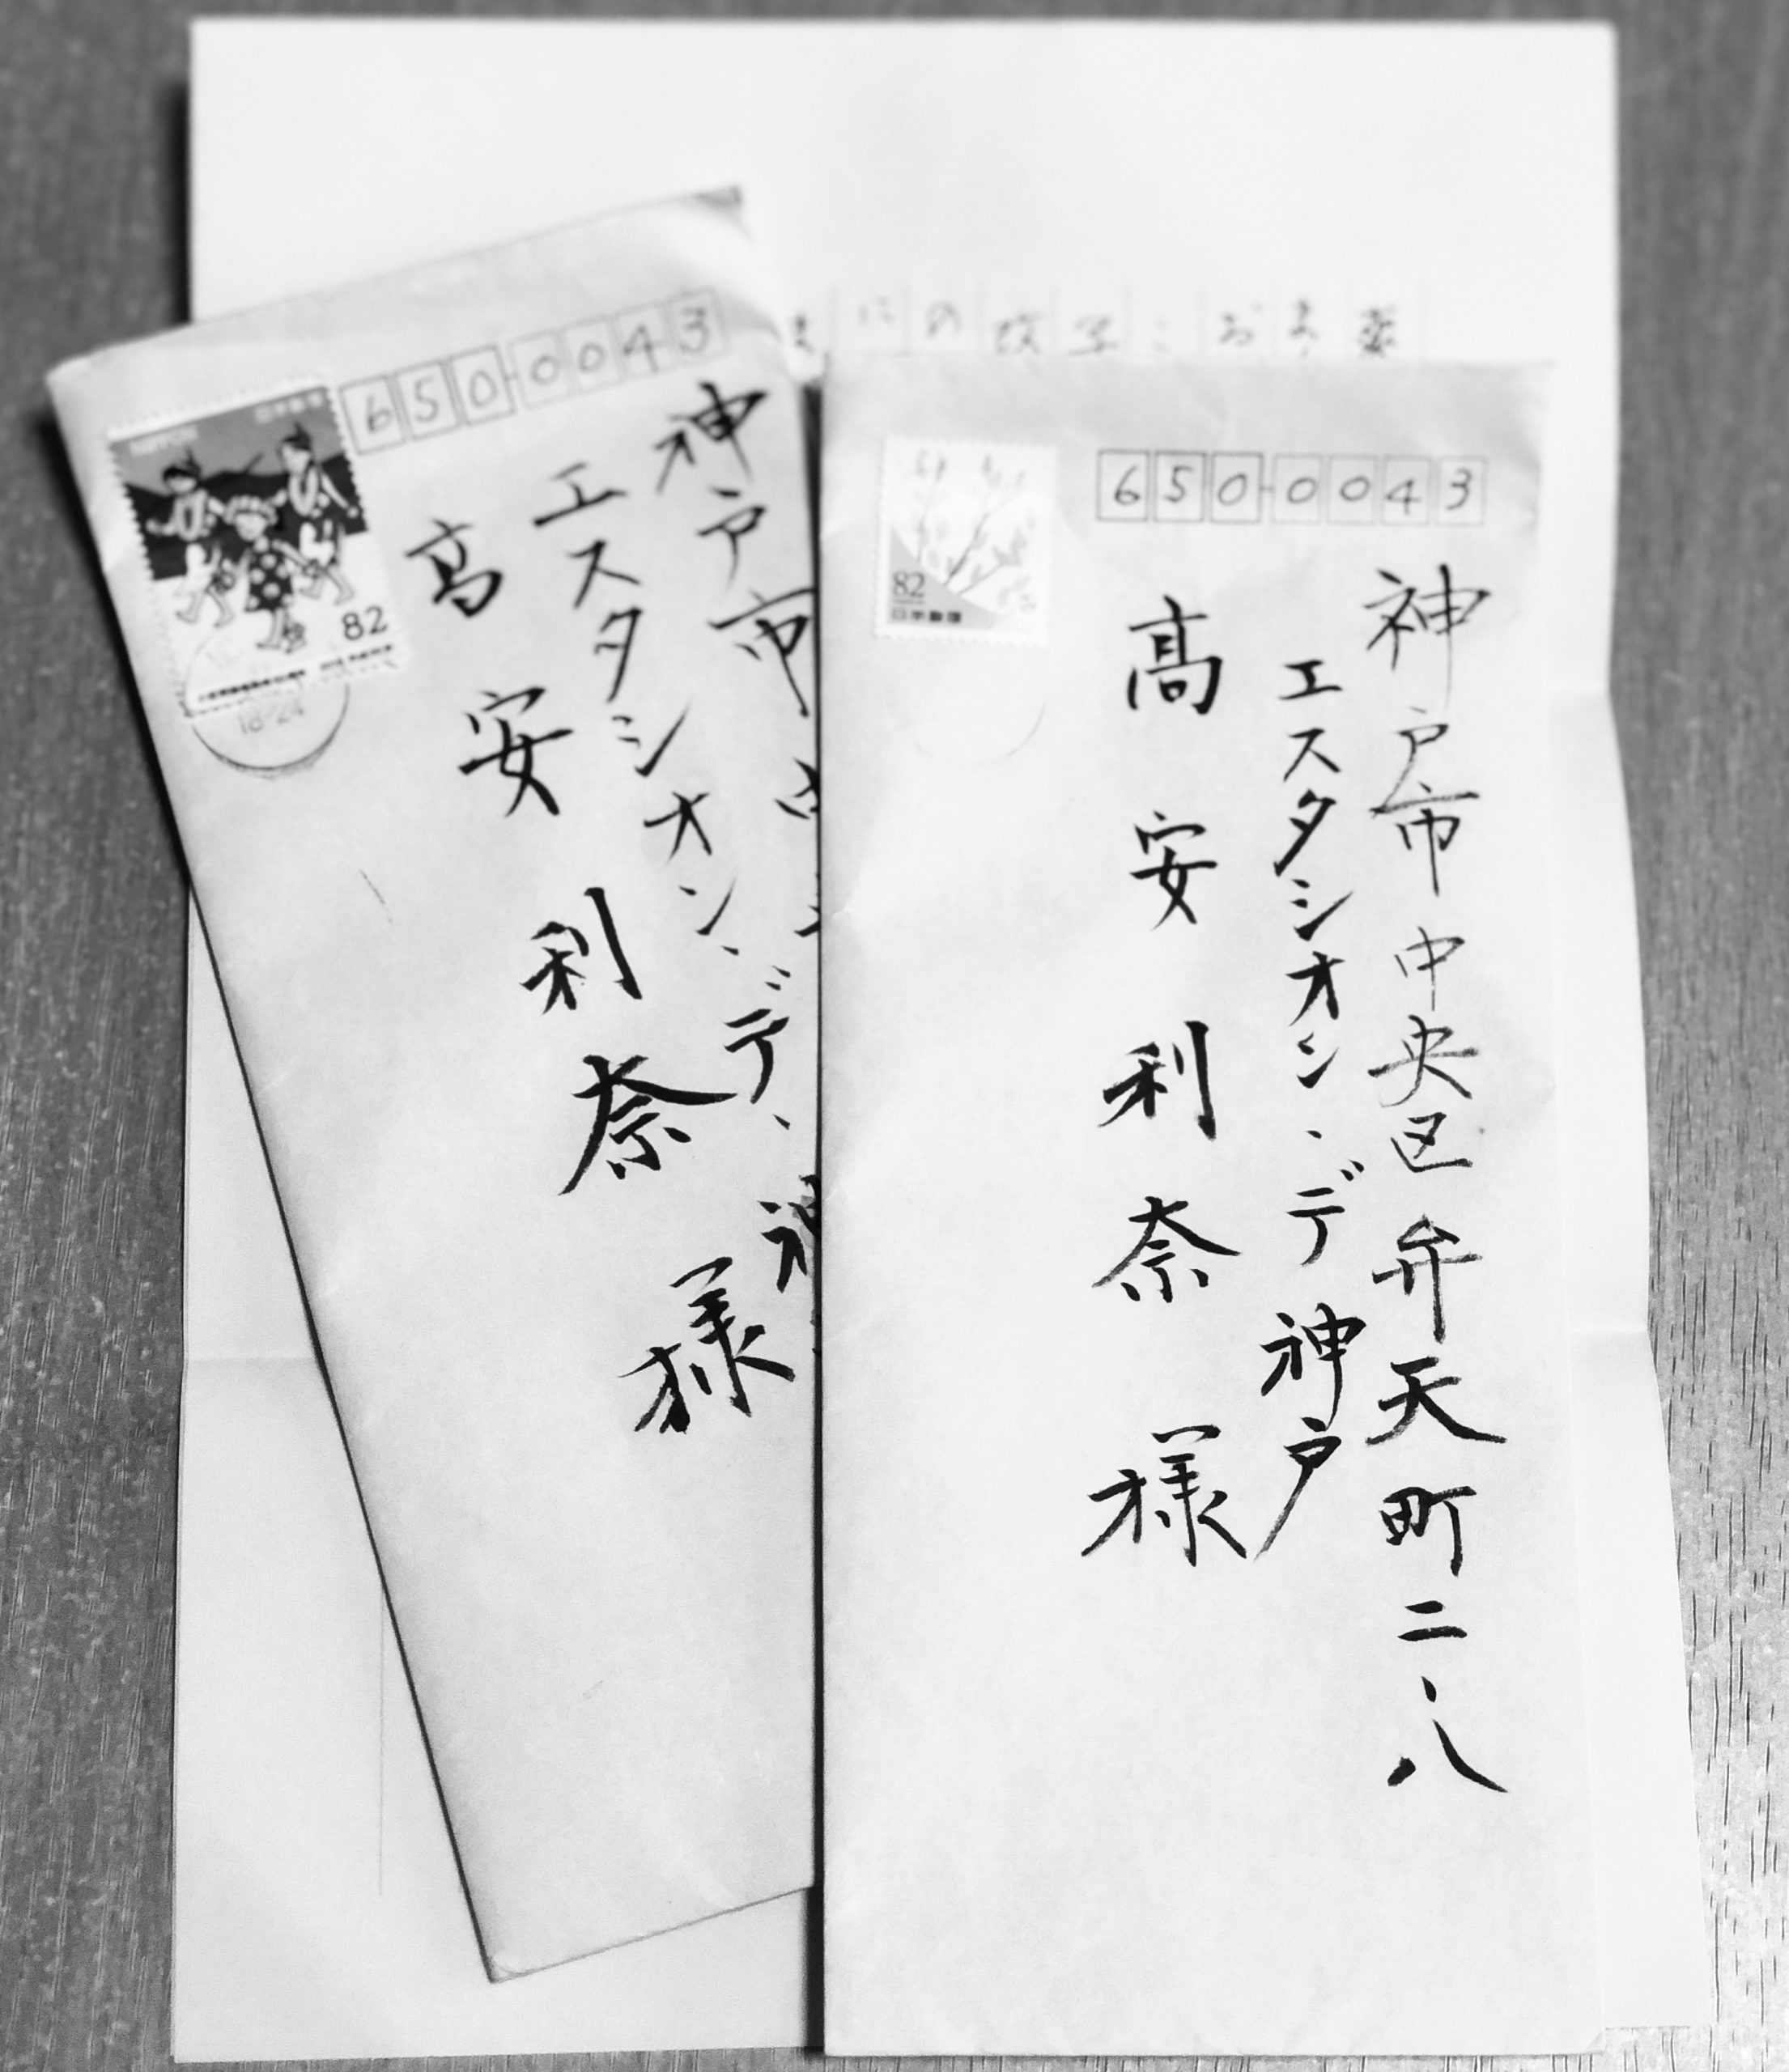 650-0043
神戸市中
エスタシオン、デ、神
高安利奈様
NIPPON
82
18-24
650-0043
神戸市中央区弁天町二、八
エスタシオン、デ神戸
髙安利奈様
82
日本郵便